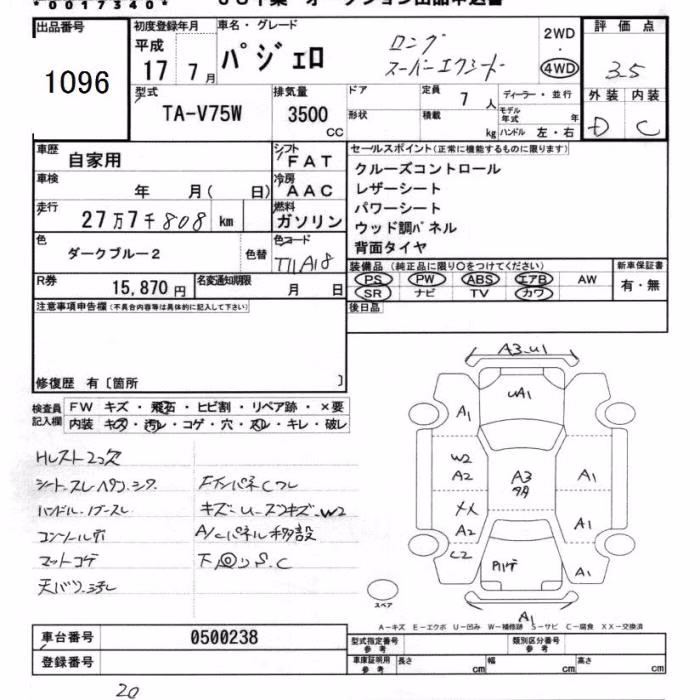 *0017340*
出品番号
1096
初度登録年月
平成
17 7月
車名・グレード
パジェロ
ロング
スーパーエクシード
2WD
・
4WD
評価点
3.5
外装 内装
D C
型式
TA-V75W
排気量
3500
CC
ドア
形状
定員
7人
積載
kg
ディーラー・並行
モデル年式 年
ハンドル 左・右
車歴
自家用
シフト
FAT
車検
年 月( 日)
冷房
AAC
走行
27万7千808 km
燃料
ガソリン
色
ダークブルー2
色替
色コード
T11A18
R券
15,870円
名変通知期限
月 日
セールスポイント(正常に機能するものに限ります)
クルーズコントロール
レザーシート
パワーシート
ウッド調パネル
背面タイヤ
装備品 (純正品に限り○をつけてください)
PS PW ABS エアB AW
SR ナビ TV カワ
新車保証書
有・無
注意事項申告欄(不具合内容等は具体的に記入して下さい)
後日品
修復歴 有〔箇所 〕
検査員
記入欄
FW キズ・飛石・ヒビ割・リペア跡・×要
内装 キズ・汚レ・コゲ・穴・スレ・キレ・破レ
Hレスト2コ欠
シートスレ
コンソール
マットコゲ
天バリ汚レ
A/Cパネル移設
下回りS.C
A3.U1
UA1
A1
W2
A2
A3
A1
XX
A2
A1
C2
A1
A1
スペア
A-キズ E-エクボ U-凹み W-補修跡 S-サビ C-腐食 XX-交換済
車台番号
0500238
登録番号
型式指定番号
参考
類別区分番号
参考
車庫証明用
参考
長さ cm
幅 cm
高さ cm
20